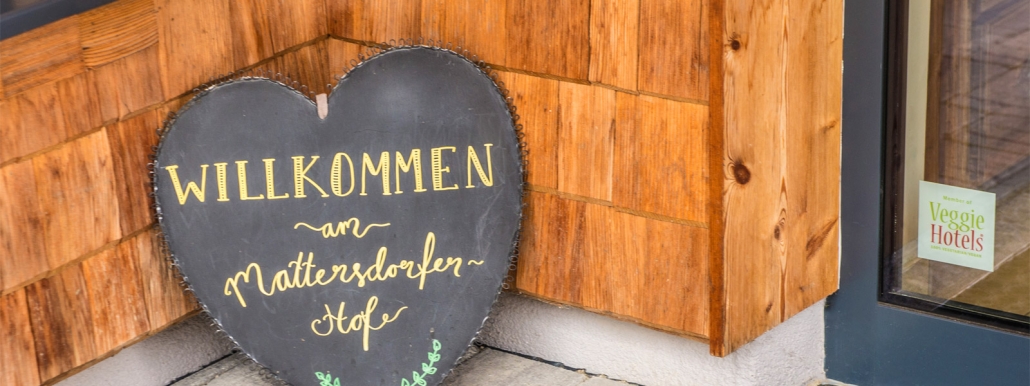 WILLKOMMEN
~am~
Mattersdorfer~
Hofe
Member of
Veggie
Hotels